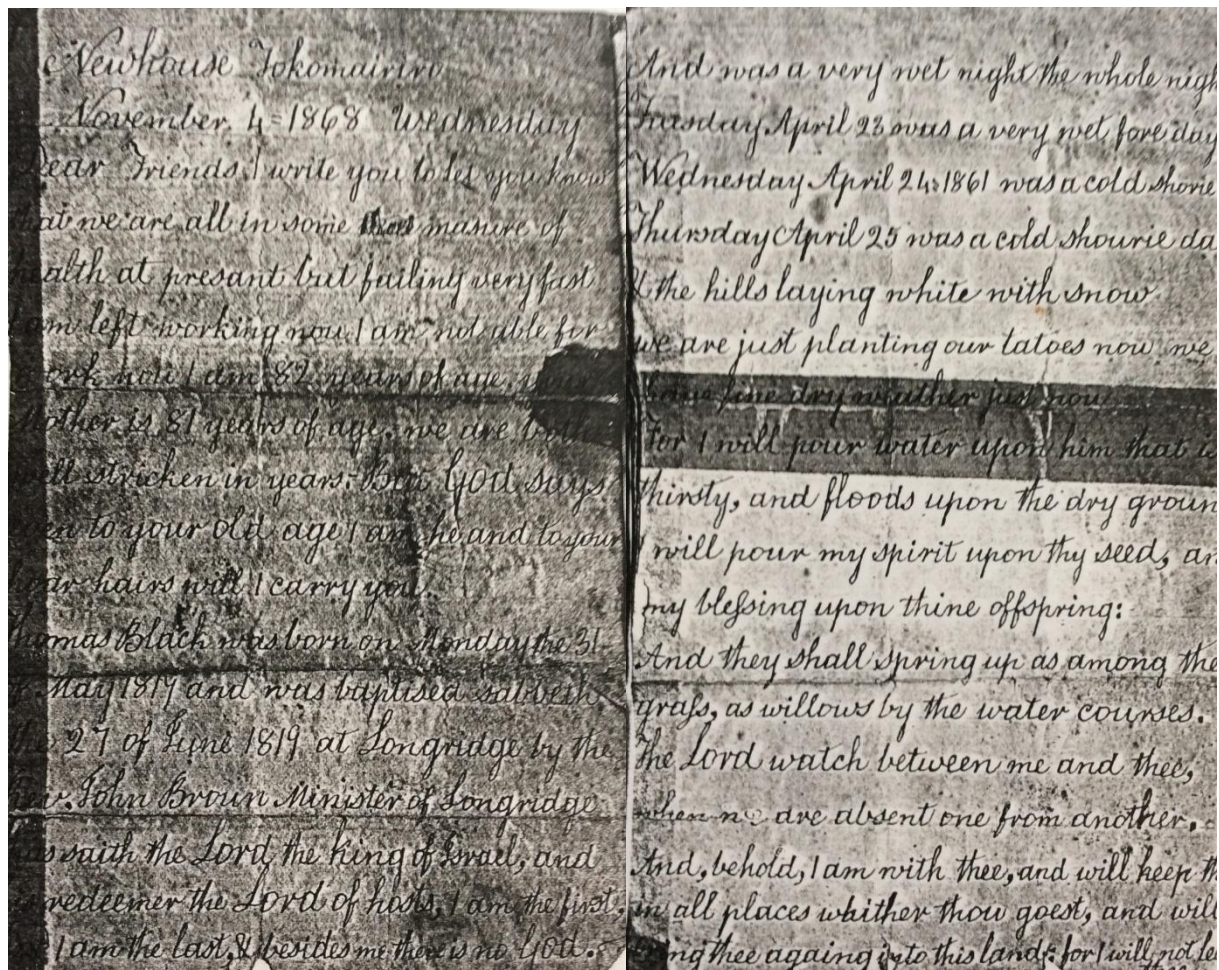 Newhouse Tokomairiro
November 4=1868 Wednesday
Dear Friends I write you to let you know
that we are all in some masure of
health at presant but failing very fast
I am left working now I am not able for
work now I am 82 years of age. your
Mother is 81 years of age. we are both
well stricken in years: But God says
even to your old age I am he and to your
hoar hairs will I carry you.
Thomas Black was born on Monday the 31
of May 1819 and was baptised sabbeth
the 27 of June 1819 at Longridge by the
Rev. John Broun Minister of Longridge
Thus saith the Lord the king of Israel, and
his redeemer the Lord of hosts, I am the first,
I am the last, & besides me there is no God.
And was a very wet night the whole nigh
Tuesday April 23 was a very wet fore day
Wednesday April 24=1861 was a cold shorie
Thursday April 25 was a cold shourie da
& the hills laying white with snow
we are just planting our tatoes now we
have fine dry weather just now
For I will pour water upon him that is
thirsty, and floods upon the dry groun
I will pour my spirit upon thy seed, an
my blessing upon thine offspring:
And they shall spring up as among the
grass, as willows by the water courses.
The Lord watch between me and thee,
when we are absent one from another.
And, behold, I am with thee, and will keep th
in all places whither thou goest, and will
bring thee againg into this land: for I will not le